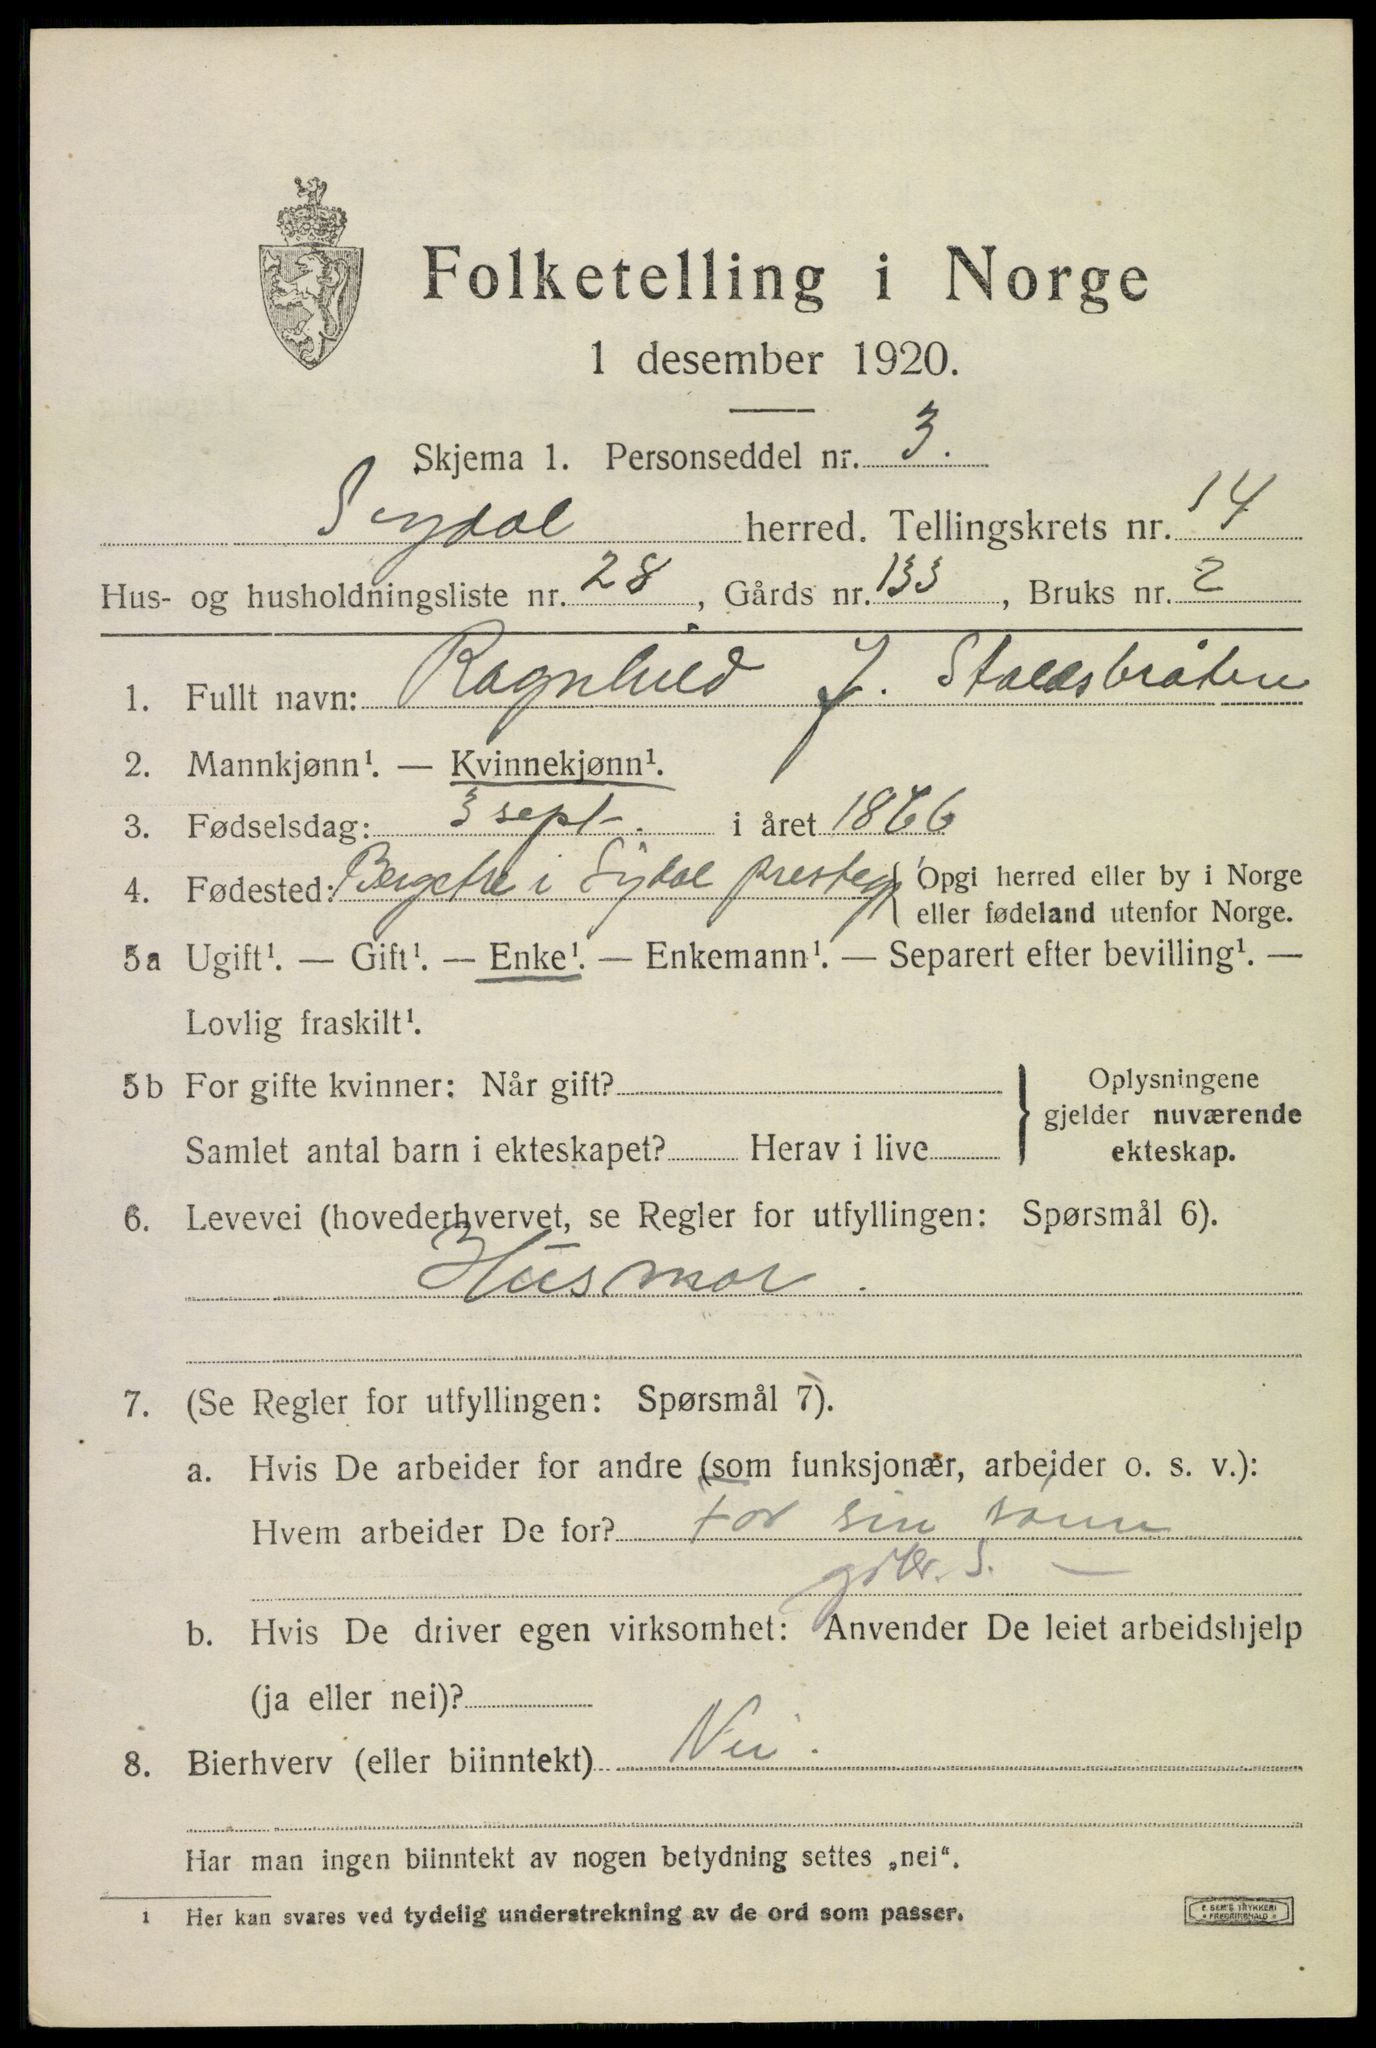 Folketelling i Norge
1 desember 1920.
Skjema 1. Personseddel nr. 3.
Sigdal herred. Tellingskrets nr. 14
Hus- og husholdningsliste nr. 28, Gårds nr. 133, Bruks nr. 2
1. Fullt navn: Ragnhild J. Staldsbråten
2. Mannkjønn¹. — Kvinnekjønn¹.
3. Fødselsdag: 3 sept. i året 1866
4. Fødested: i Sigdal prestegj { Opgi herred eller by i Norge
eller fødeland utenfor Norge.
5a Ugift¹. — Gift¹. — Enke¹. — Enkemann¹. — Separert efter bevilling¹. —
Lovlig fraskilt¹.
5b For gifte kvinner: Når gift?
Samlet antal barn i ekteskapet? Herav i live
} Oplysningene
gjelder nuværende
ekteskap.
6. Levevei (hovederhvervet, se Regler for utfyllingen: Spørsmål 6).
Husmor.
7. (Se Regler for utfyllingen: Spørsmål 7).
a. Hvis De arbeider for andre (som funksjonær, arbeider o. s. v.):
Hvem arbeider De for? For sin sønn
gbr. S. —
b. Hvis De driver egen virksomhet: Anvender De leiet arbeidshjelp
(ja eller nei)?
8. Bierhverv (eller biinntekt) Nei.
Har man ingen biinntekt av nogen betydning settes „nei“.
1 Her kan svares ved tydelig understrekning av de ord som passer.
E. SEM'S TRYKKERI
• FREDRIKSHALD •